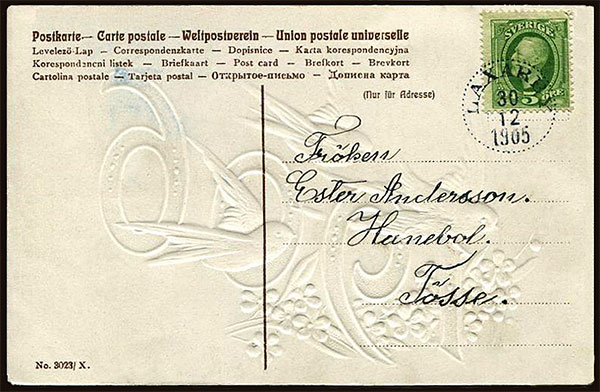 Postkarte — Carte postale — Weltpostverein — Union postale universelle
Levelező-Lap — Correspondenzkarte — Dopisnice — Karta korespondencyjna
Korespondencni listek — Briefkaart — Post card — Brefkort — Brevkort
Cartolina postale — Tarjeta postal — Открытое-письмо — Дописна карта
(Nur für Adresse)
SVERIGE
5 ÖRE
30
12
1905
Fröken
Ester Andersson.
Hanebol.
Tösse.
No. 3023/X.